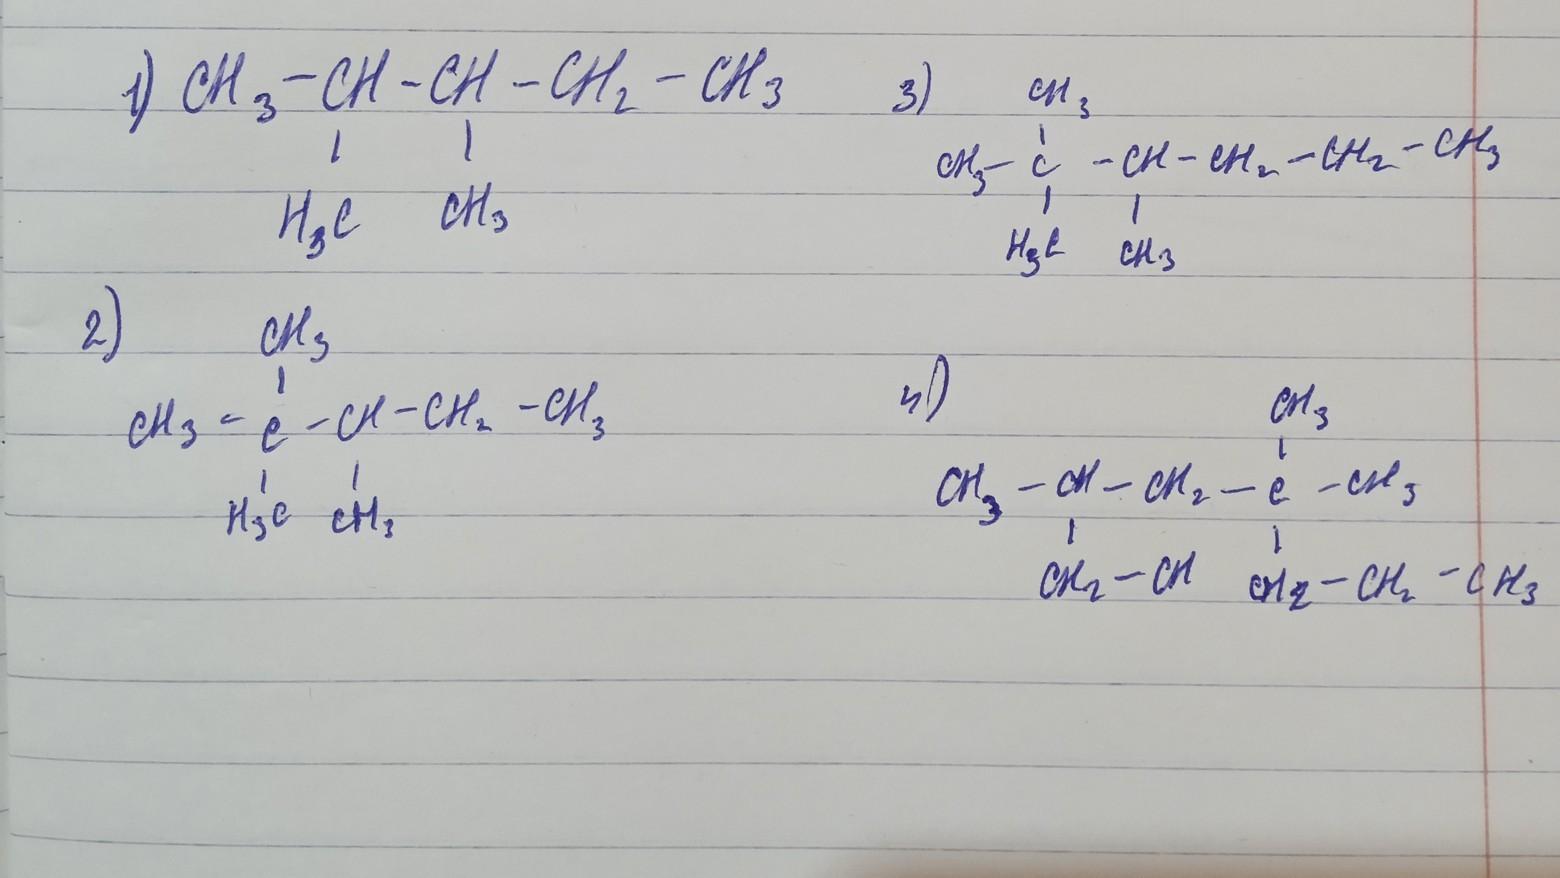 1) CH₃ – CH – CH – CH₂ – CH₃
H₃C CH₃
2) CH₃
CH₃ – C – CH – CH₂ – CH₃
H₃C CH₃
3) CH₃
CH₃ – C – CH – CH₂ – CH₂ – CH₃
H₃C CH₃
4) CH₃
CH₃ – CH – CH₂ – C – CH₃
CH₂ – CH CH₂ – CH₂ – CH₃